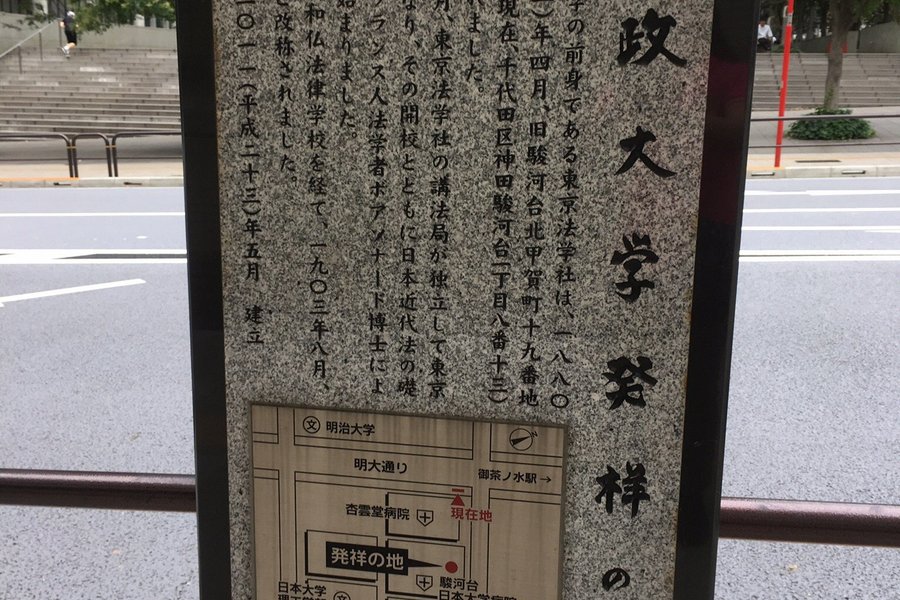 政大学発祥の
学の前身である東京法学社は、一八八〇
)年四月、旧駿河台北甲賀町十九番地
現在 千代田区神田駿河台一丁目八番十三)
いました。
月、東京法学社の講法局が独立して東京
なり、その開校とともに日本近代法の礎
フランス人法学者ボアソナード博士によ
始まりました。
和仏法律学校を経て、一九〇三年八月、
と改称されました。
二〇一一(平成二十三)年五月 建立
明治大学
明大通り
御茶ノ水駅→
杏雲堂病院
現在地
発祥の地
駿河台
日本大学病院
日本大学
理工学部